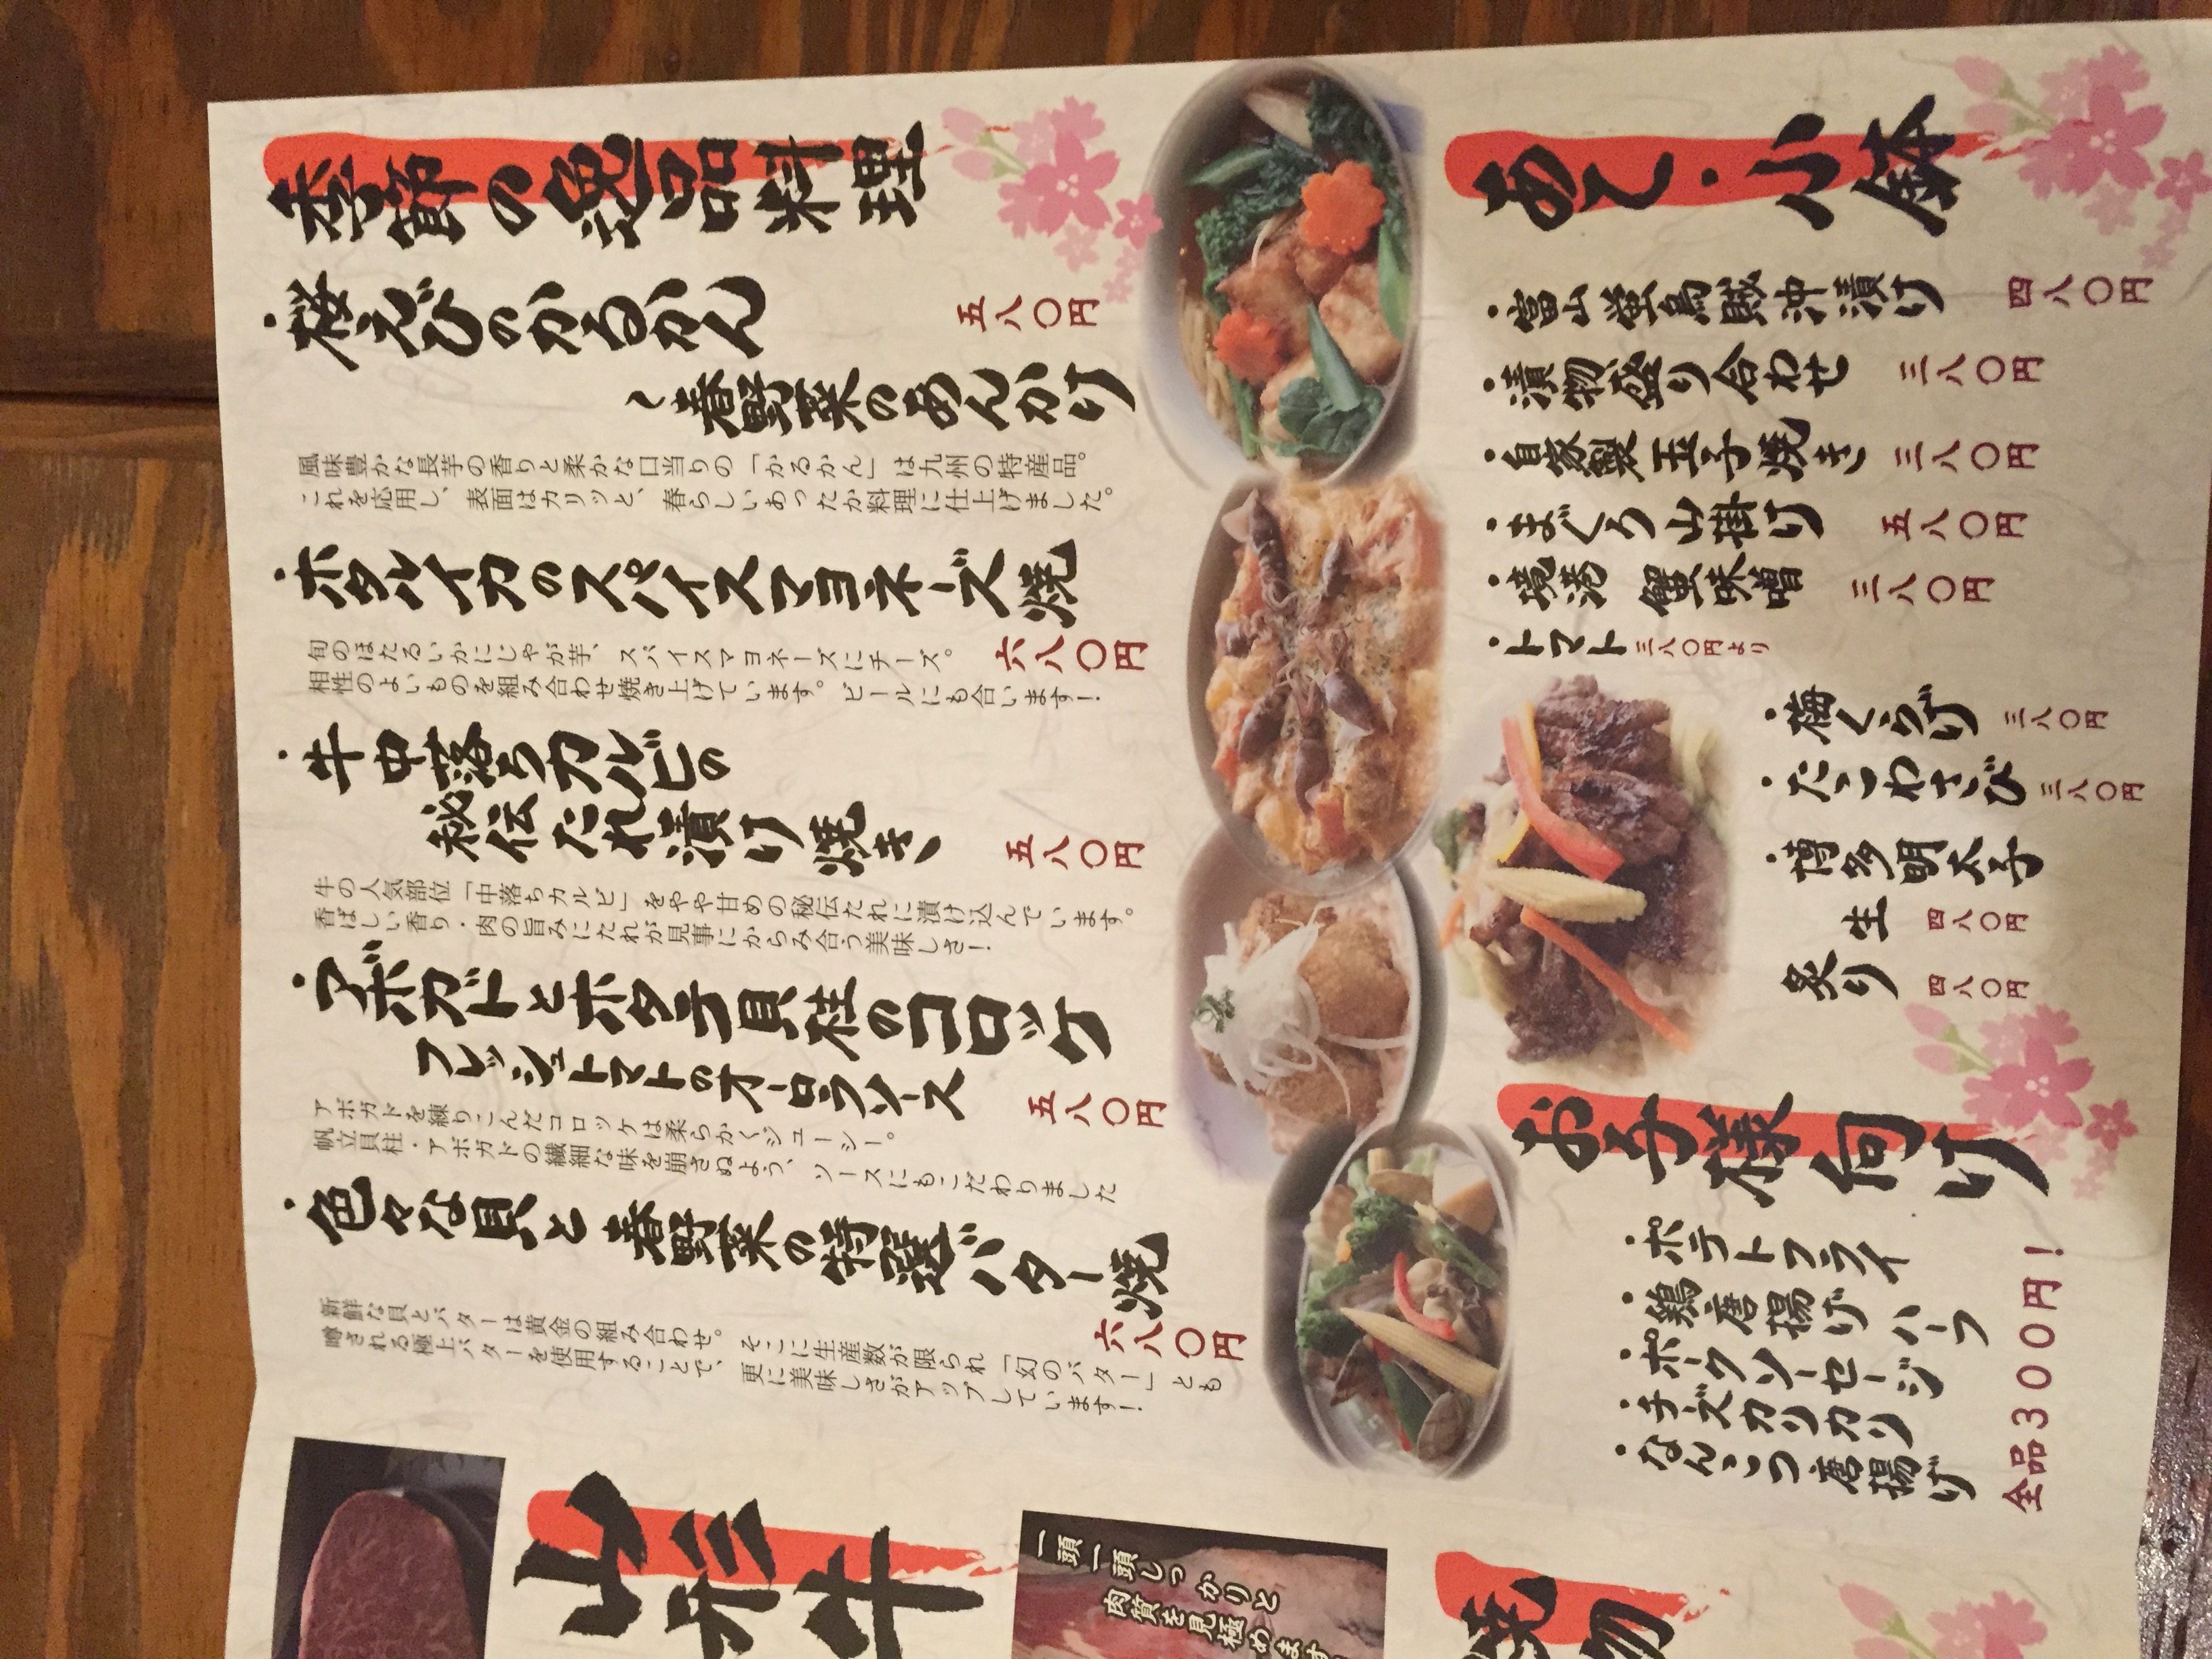 季節の逸品料理
・桜えびのかるかん
～春野菜のあんかけ
五八〇円
風味豊かな長芋の香りと柔かな口当りの「かるかん」は九州の特産品。
これを応用し、表面はカリッと、春らしいあったか料理に仕上げました。
・ホタルイカのスパイスマヨネーズ焼
六八〇円
旬のほたるいかにじゃが芋、スパイスマヨネーズにチーズ。
相性のよいものを組み合わせ焼き上げています。ビールにも合います！
・牛中落ちカルビの
秘伝たれ漬け焼き
五八〇円
牛の人気部位「中落ちカルビ」をやや甘めの秘伝たれに漬け込んでいます。
香ばしい香り・肉の旨みにたれが見事にからみ合う美味しさ！
・アボガドとホタテ貝柱のコロッケ
フレッシュトマトのオーロラソース
五八〇円
アボガドを練りこんだコロッケは柔らかくジューシー。
帆立貝柱・アボガドの繊細な味を崩さぬよう、ソースにもこだわりました
・色々な貝と春野菜の特選バター焼
六八〇円
新鮮な貝とバターは黄金の組み合わせ。そこに生産数が限られ「幻のバター」とも
噂される極上バターを使用することで、更に美味しさがアップしています！
あて・小鉢
・富山蛍烏賊沖漬け 四八〇円
・漬物盛り合わせ 三八〇円
・自家製玉子焼き 三八〇円
・まぐろ山掛け 五八〇円
・境港 蟹味噌 三八〇円
・トマト 三八〇円より
・梅くらげ 三八〇円
・たこわさび 三八〇円
・博多明太子
生 四八〇円
炙り 四八〇円
お子様向け
・ポテトフライ
・鶏唐揚げハーフ
・ポークソーセージ
・チーズカリカリ
・なんこつ唐揚げ
全品300円！
山形牛
一頭一頭しっかりと
肉質を見極めます
焼物